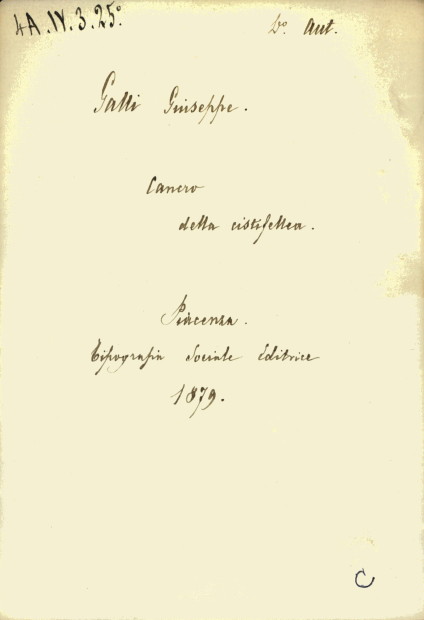 4A.IV.3.25º
Dº. Aut.
Galli Giuseppe.
Cancro
della cistifellea.
Piacenza.
Tipografia Sociale Editrice
1879.
C